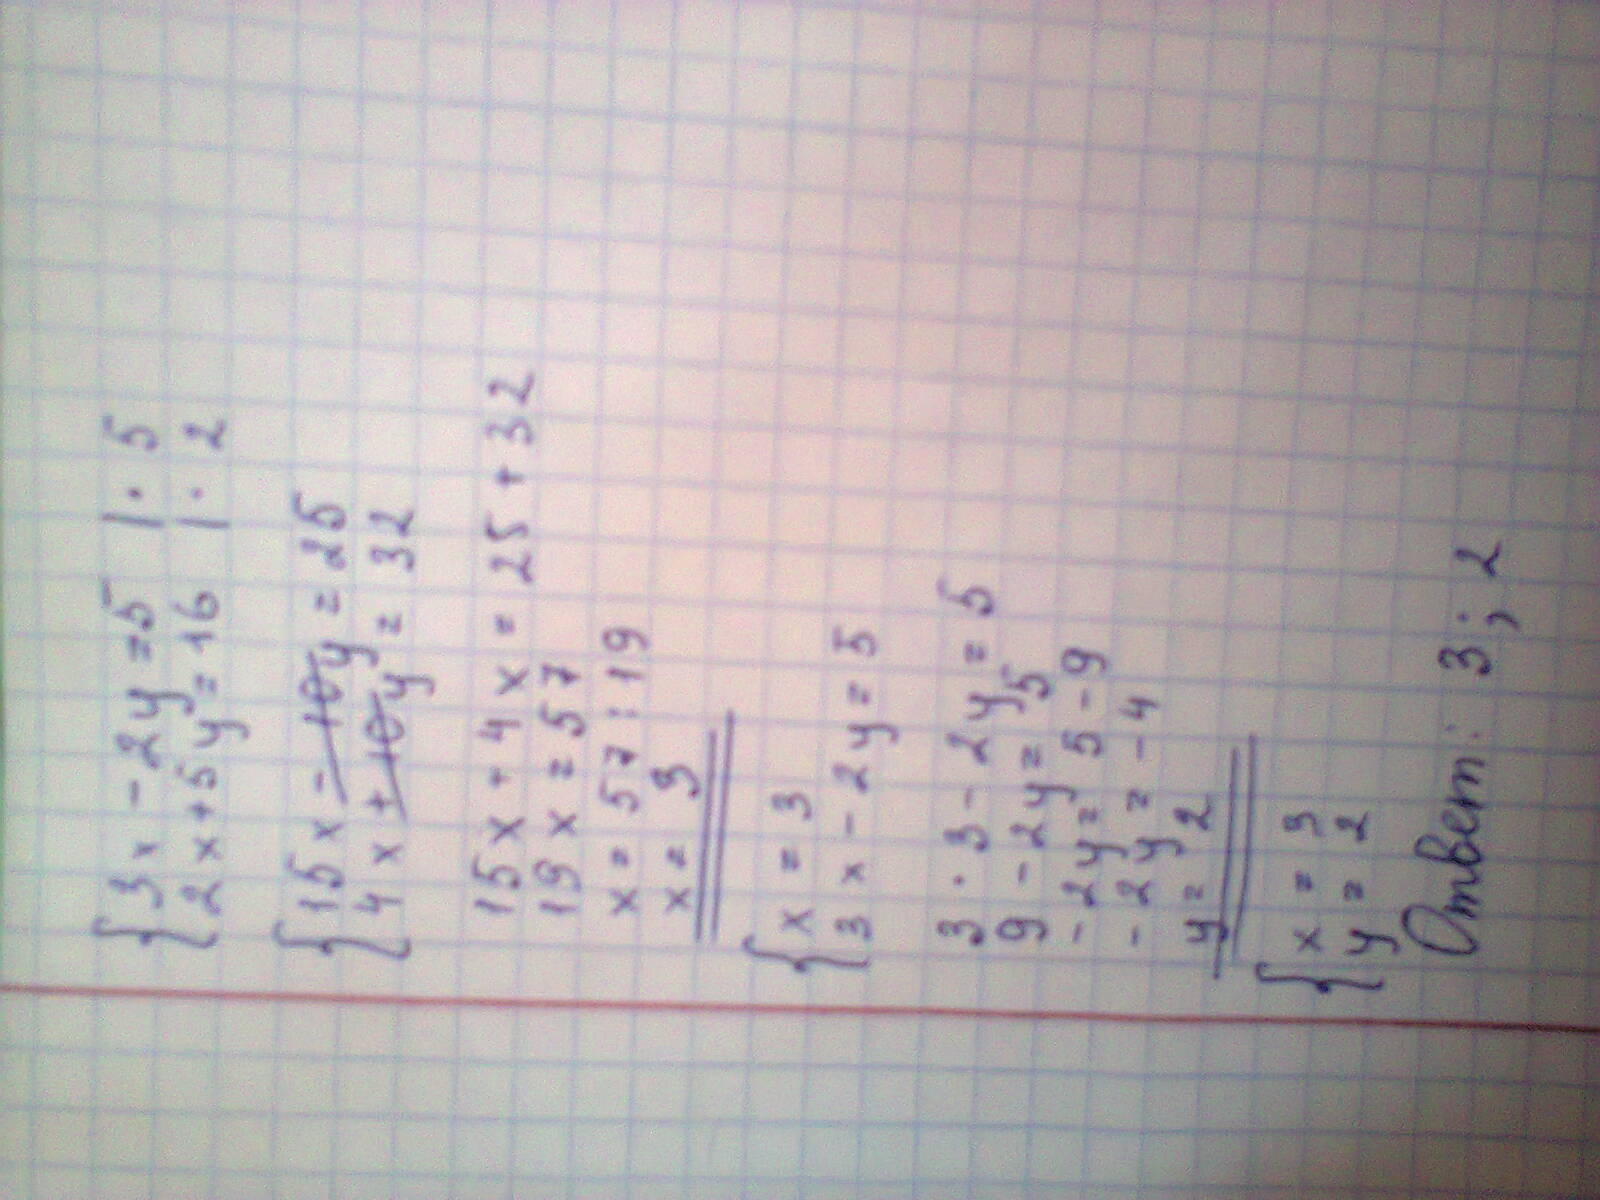 { 3x - 2y = 5 | · 5
2x + 5y = 16 | · 2
{ 15x - 10y = 25
4x + 10y = 32
15x + 4x = 25 + 32
19x = 57
x = 57 : 19
x = 3
{ x = 3
3x - 2y = 5
3 · 3 - 2y = 5
9 - 2y = 5
- 2y = 5 - 9
- 2y = - 4
y = 2
{ x = 3
y = 2
Ответ: 3 ; 2